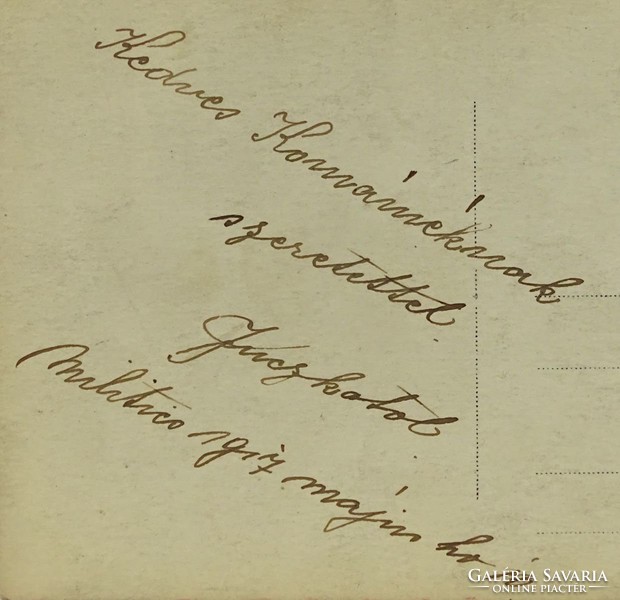 Kedves Komáméknak
szeretettel.
Juczkatol.
Militics 1917 május hó
GALÉRIA SAVARIA
ONLINE PIACTÉR